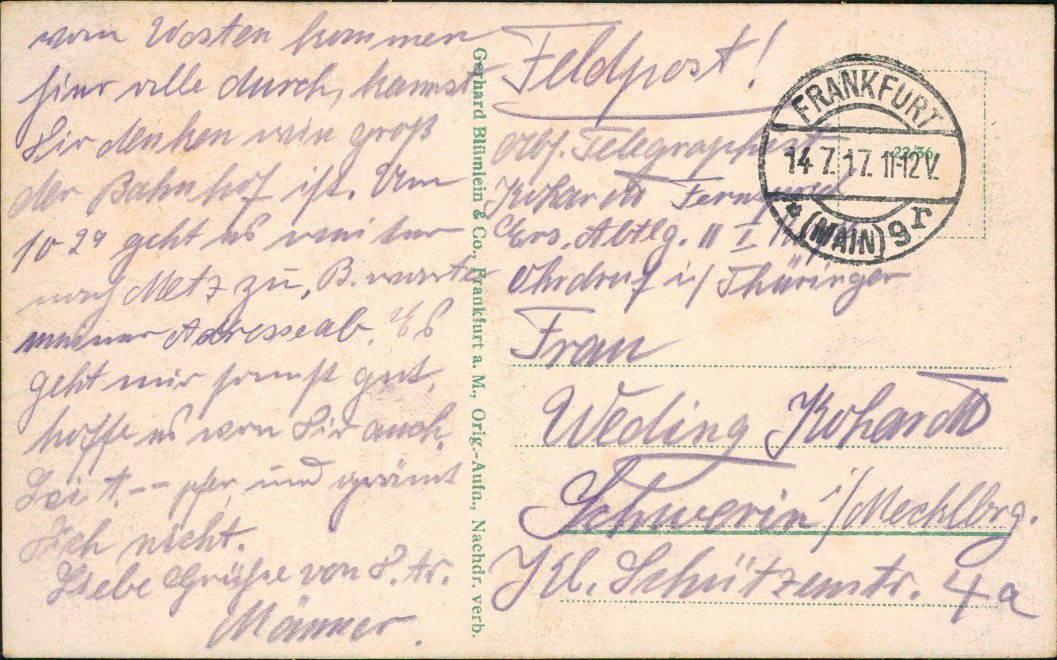 vom Westen kommen
hier alle durch, kannst
Dir denken wie groß
der Bahnhof ist. Um
10 24 geht es weiter
nach Metz zu, B. warte
meiner Adresse ab. Es
geht mir sonst gut,
hoffe es von Dir auch.
Sei und grämt
Dich nicht.
Liebe Grüße von
Männer.
Gerhard Blümlein & Co., Frankfurt a. M., Orig.-Aufn., Nachdr. verb.
Feldpost!
Abs. Telegraphist
Kohardt
Ers. Abtlg. II
Ohrdruf i/ Thüringer
Frau
Weding Kohardt
Schwerin i/Mecklbrg.
Kl. Schützenstr. 4a
FRANKFURT
14.7.17. 11-12 V.
* (MAIN) 9 r
2236